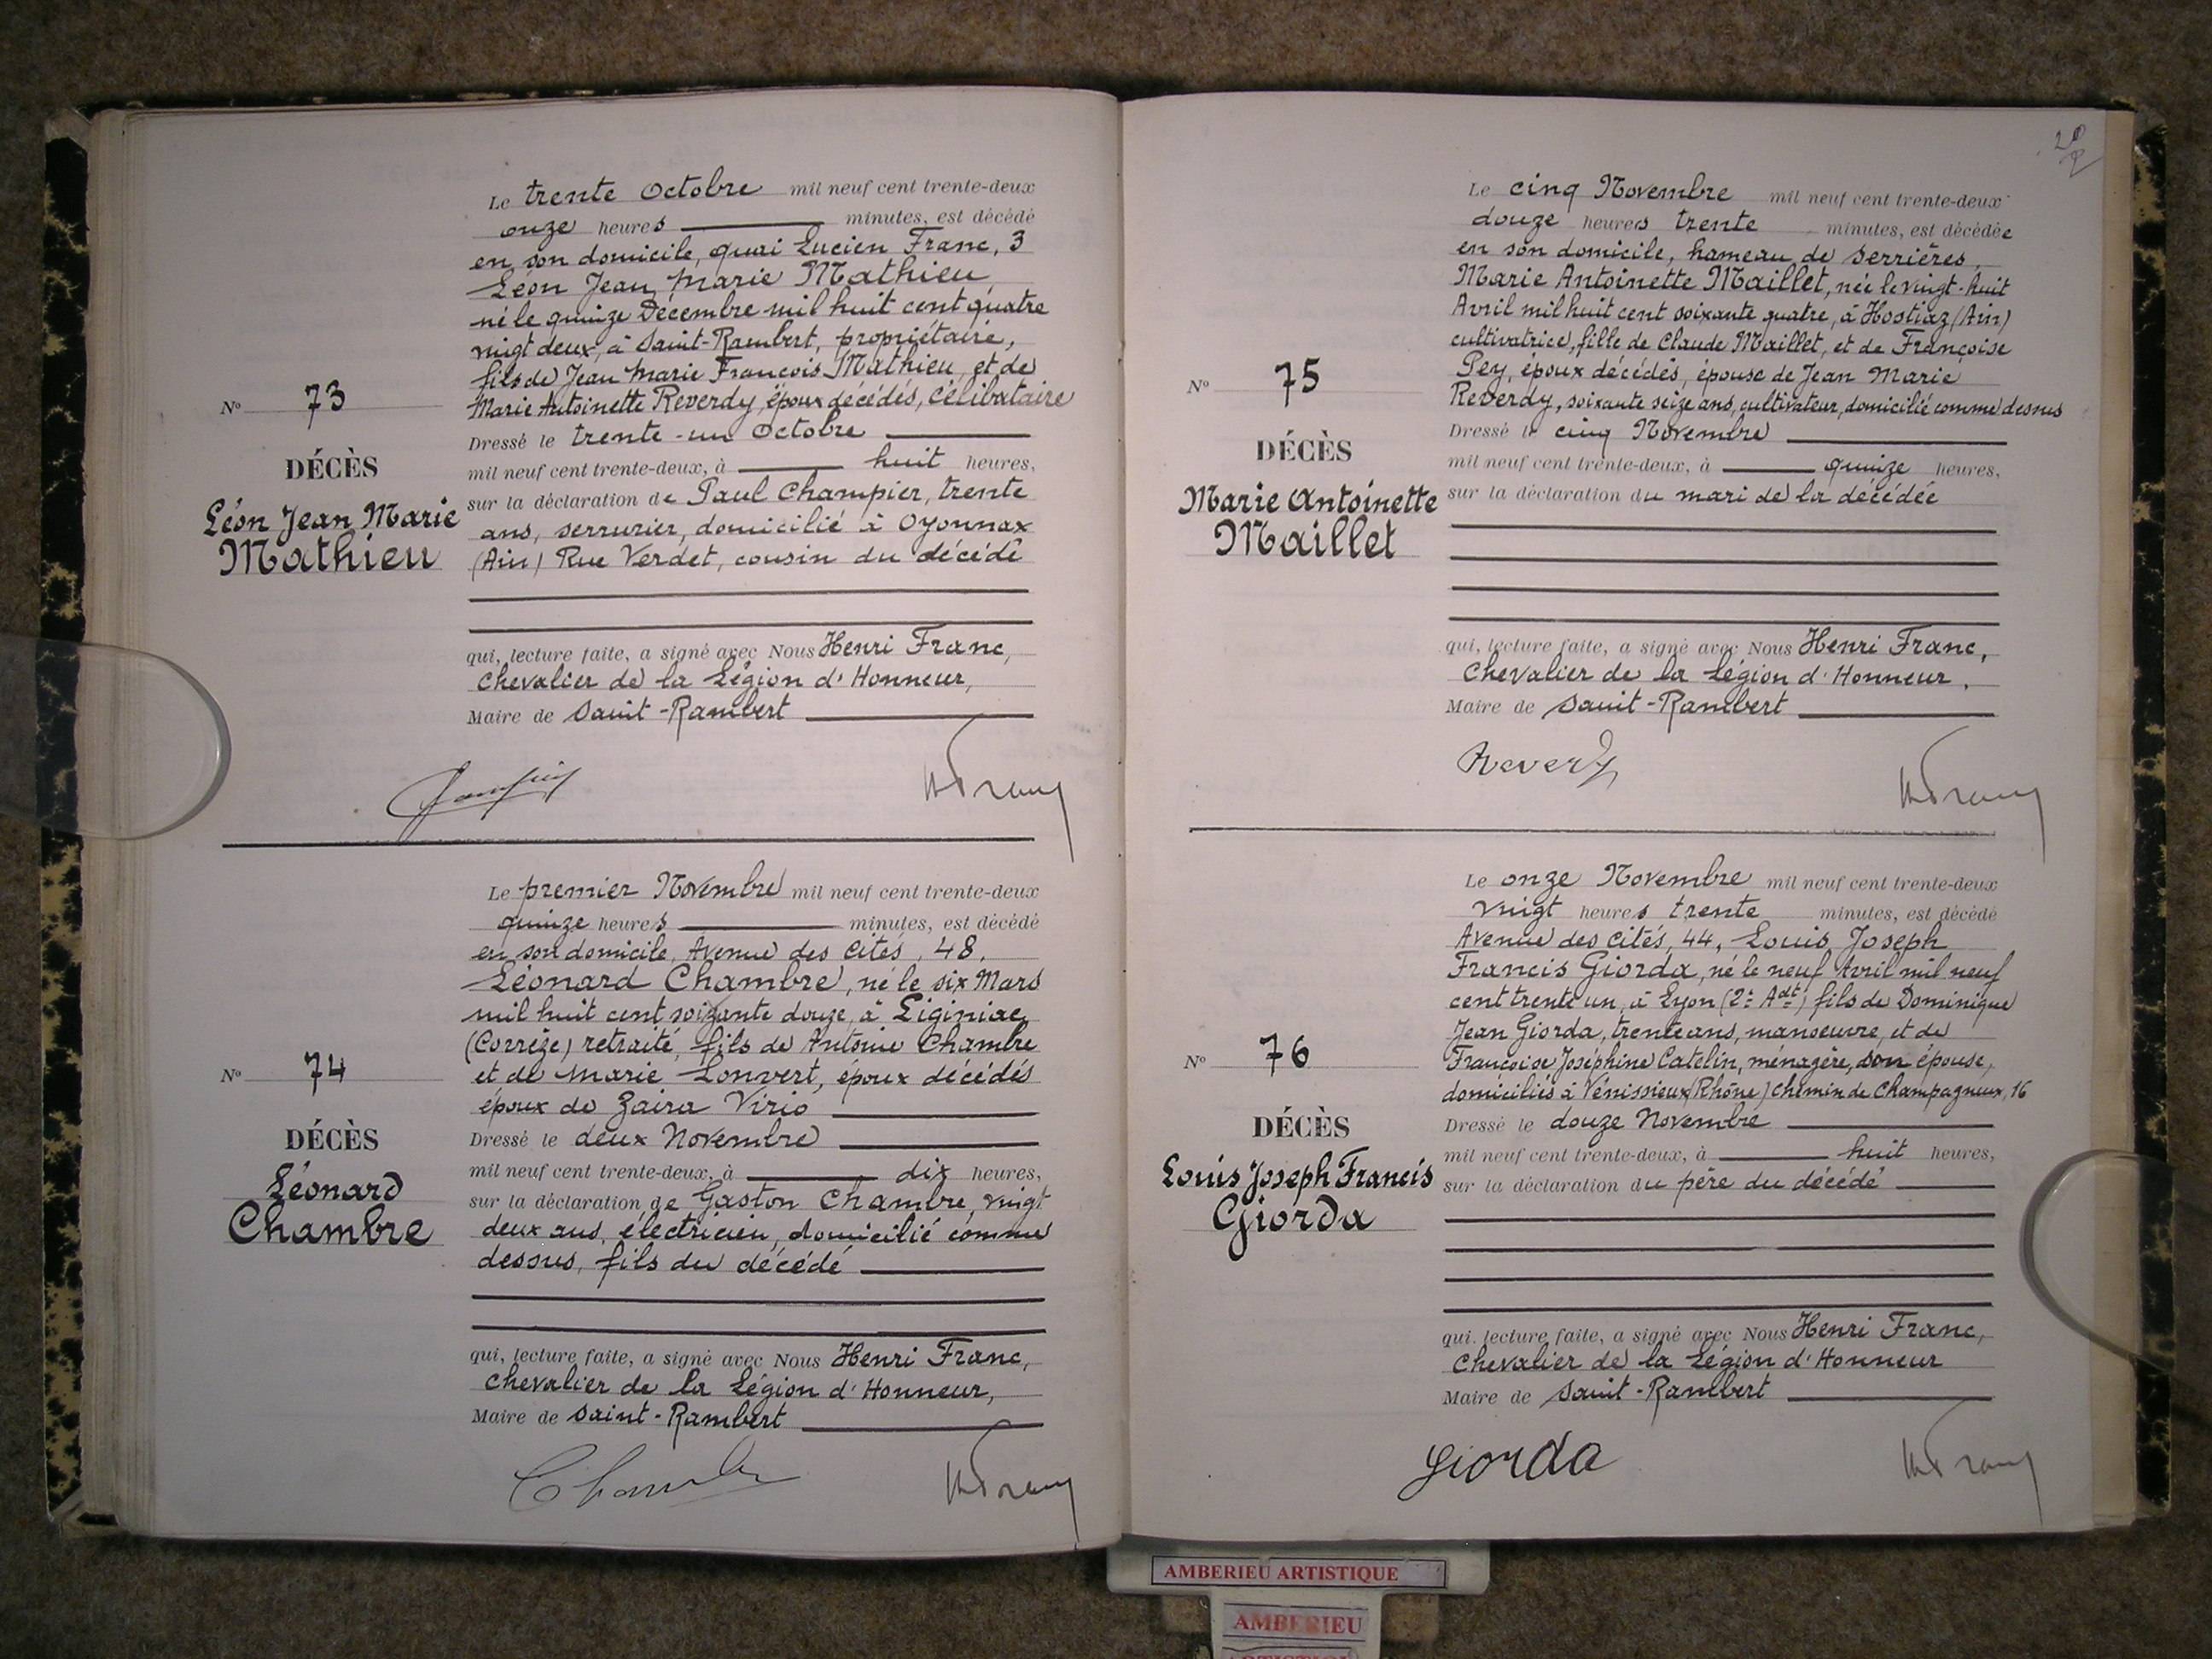 Le trente Octobre mil neuf cent trente-deux
onze heures minutes, est décédé
en son domicile, quai Lucien Franc, 3
Léon Jean Marie Mathieu
né le quinze Décembre mil huit cent quatre
vingt deux, à Saint-Rambert, propriétaire,
fils de Jean Marie François Mathieu, et de
Marie Antoinette Reverdy, époux décédés, célibataire
Nº 73
DÉCÈS
Léon Jean Marie
Mathieu
Dressé le trente-un Octobre
mil neuf cent trente-deux, à huit heures,
sur la déclaration de Paul Champier, trente
ans, serrurier, domicilié à Oyonnax
(Ain) Rue Verdet, cousin du décédé
qui, lecture faite, a signé avec Nous Henri Franc,
Chevalier de la Légion d'Honneur,
Maire de Saint-Rambert
Le premier Novembre mil neuf cent trente-deux
quinze heures minutes, est décédé
en son domicile, Avenue des Cités, 48,
Léonard Chambre, né le six Mars
mil huit cent soixante douze, à Liginiac
(Corrèze) retraité, fils de Antoine Chambre
et de Marie Lonvert, époux décédés
époux de Zaïra Virio
Nº 74
DÉCÈS
Léonard
Chambre
Dressé le deux Novembre
mil neuf cent trente-deux, à dix heures,
sur la déclaration de Gaston Chambre, vingt
deux ans, électricien, domicilié comme
dessus, fils du décédé
qui, lecture faite, a signé avec Nous Henri Franc,
Chevalier de la Légion d'Honneur,
Maire de Saint-Rambert
Chambre
Le cinq Novembre mil neuf cent trente-deux
douze heures trente minutes, est décédée
en son domicile, hameau de Serrières,
Marie Antoinette Maillet, née le vingt-huit
Avril mil huit cent soixante quatre, à Hostiaz (Ain)
cultivatrice, fille de Claude Maillet, et de Françoise
Pey, époux décédés, épouse de Jean Marie
Reverdy, soixante seize ans, cultivateur, domicilié comme dessus
Nº 75
DÉCÈS
Marie Antoinette
Maillet
Dressé le cinq Novembre
mil neuf cent trente-deux, à quinze heures,
sur la déclaration du mari de la décédée
qui, lecture faite, a signé avec Nous Henri Franc,
Chevalier de la Légion d'Honneur,
Maire de Saint-Rambert
Reverdy
Le onze Novembre mil neuf cent trente-deux
vingt heures trente minutes, est décédé
Avenue des Cités, 44, Louis Joseph
Francis Giorda, né le neuf Avril mil neuf
cent trente un, à Lyon (2e Adt) fils de Dominique
Jean Giorda, trente ans, manoeuvre, et de
Françoise Joséphine Catelin, ménagère, son épouse,
domiciliés à Vénissieux (Rhône) Chemin de Champagneux, 16
Nº 76
DÉCÈS
Louis Joseph Francis
Giorda
Dressé le douze Novembre
mil neuf cent trente-deux, à huit heures,
sur la déclaration du père du décédé
qui, lecture faite, a signé avec Nous Henri Franc,
Chevalier de la Légion d'Honneur
Maire de Saint-Rambert
Giorda
AMBERIEU ARTISTIQUE
AMBERIEU
ARTISTIQUE